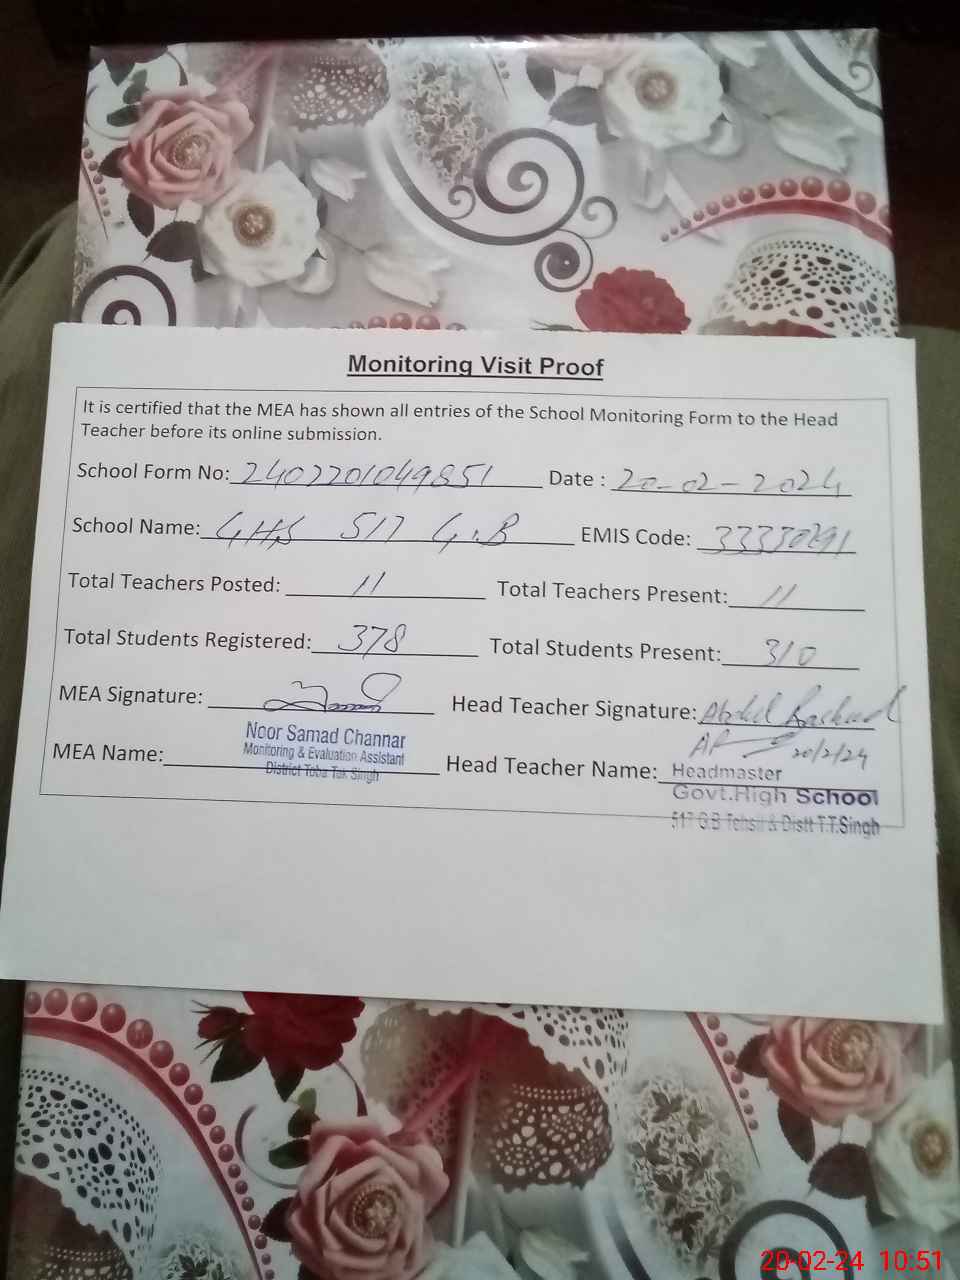 Monitoring Visit Proof
It is certified that the MEA has shown all entries of the School Monitoring Form to the Head
Teacher before its online submission.
School Form No: 2402201049851 Date : 20-02-2024
School Name: GHS 517 G.B EMIS Code: 33330291
Total Teachers Posted: 11 Total Teachers Present: 11
Total Students Registered: 378 Total Students Present: 310
MEA Signature: Head Teacher Signature: Abdul Rasheed
20/2/24
Noor Samad Channar
Monitoring & Evaluation Assistant
District Toba Tek Singh
MEA Name: Head Teacher Name: Headmaster
Govt.High School
517 G.B Tehsil & Distt T.T.Singh
20-02-24 10:51